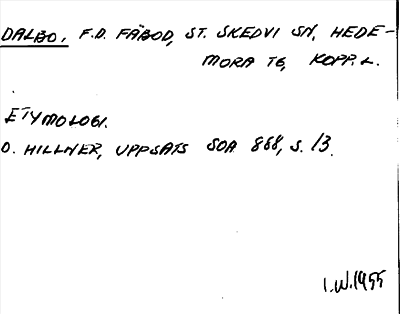 DALBO, F.D. FÄBOD, ST. SKEDVI SN, HEDE-
MORA TG, KOPP. L.
ETYMOLOGI.
O. HILLNER, UPPSATS SOA 868, S. 13.
I.W. 1955